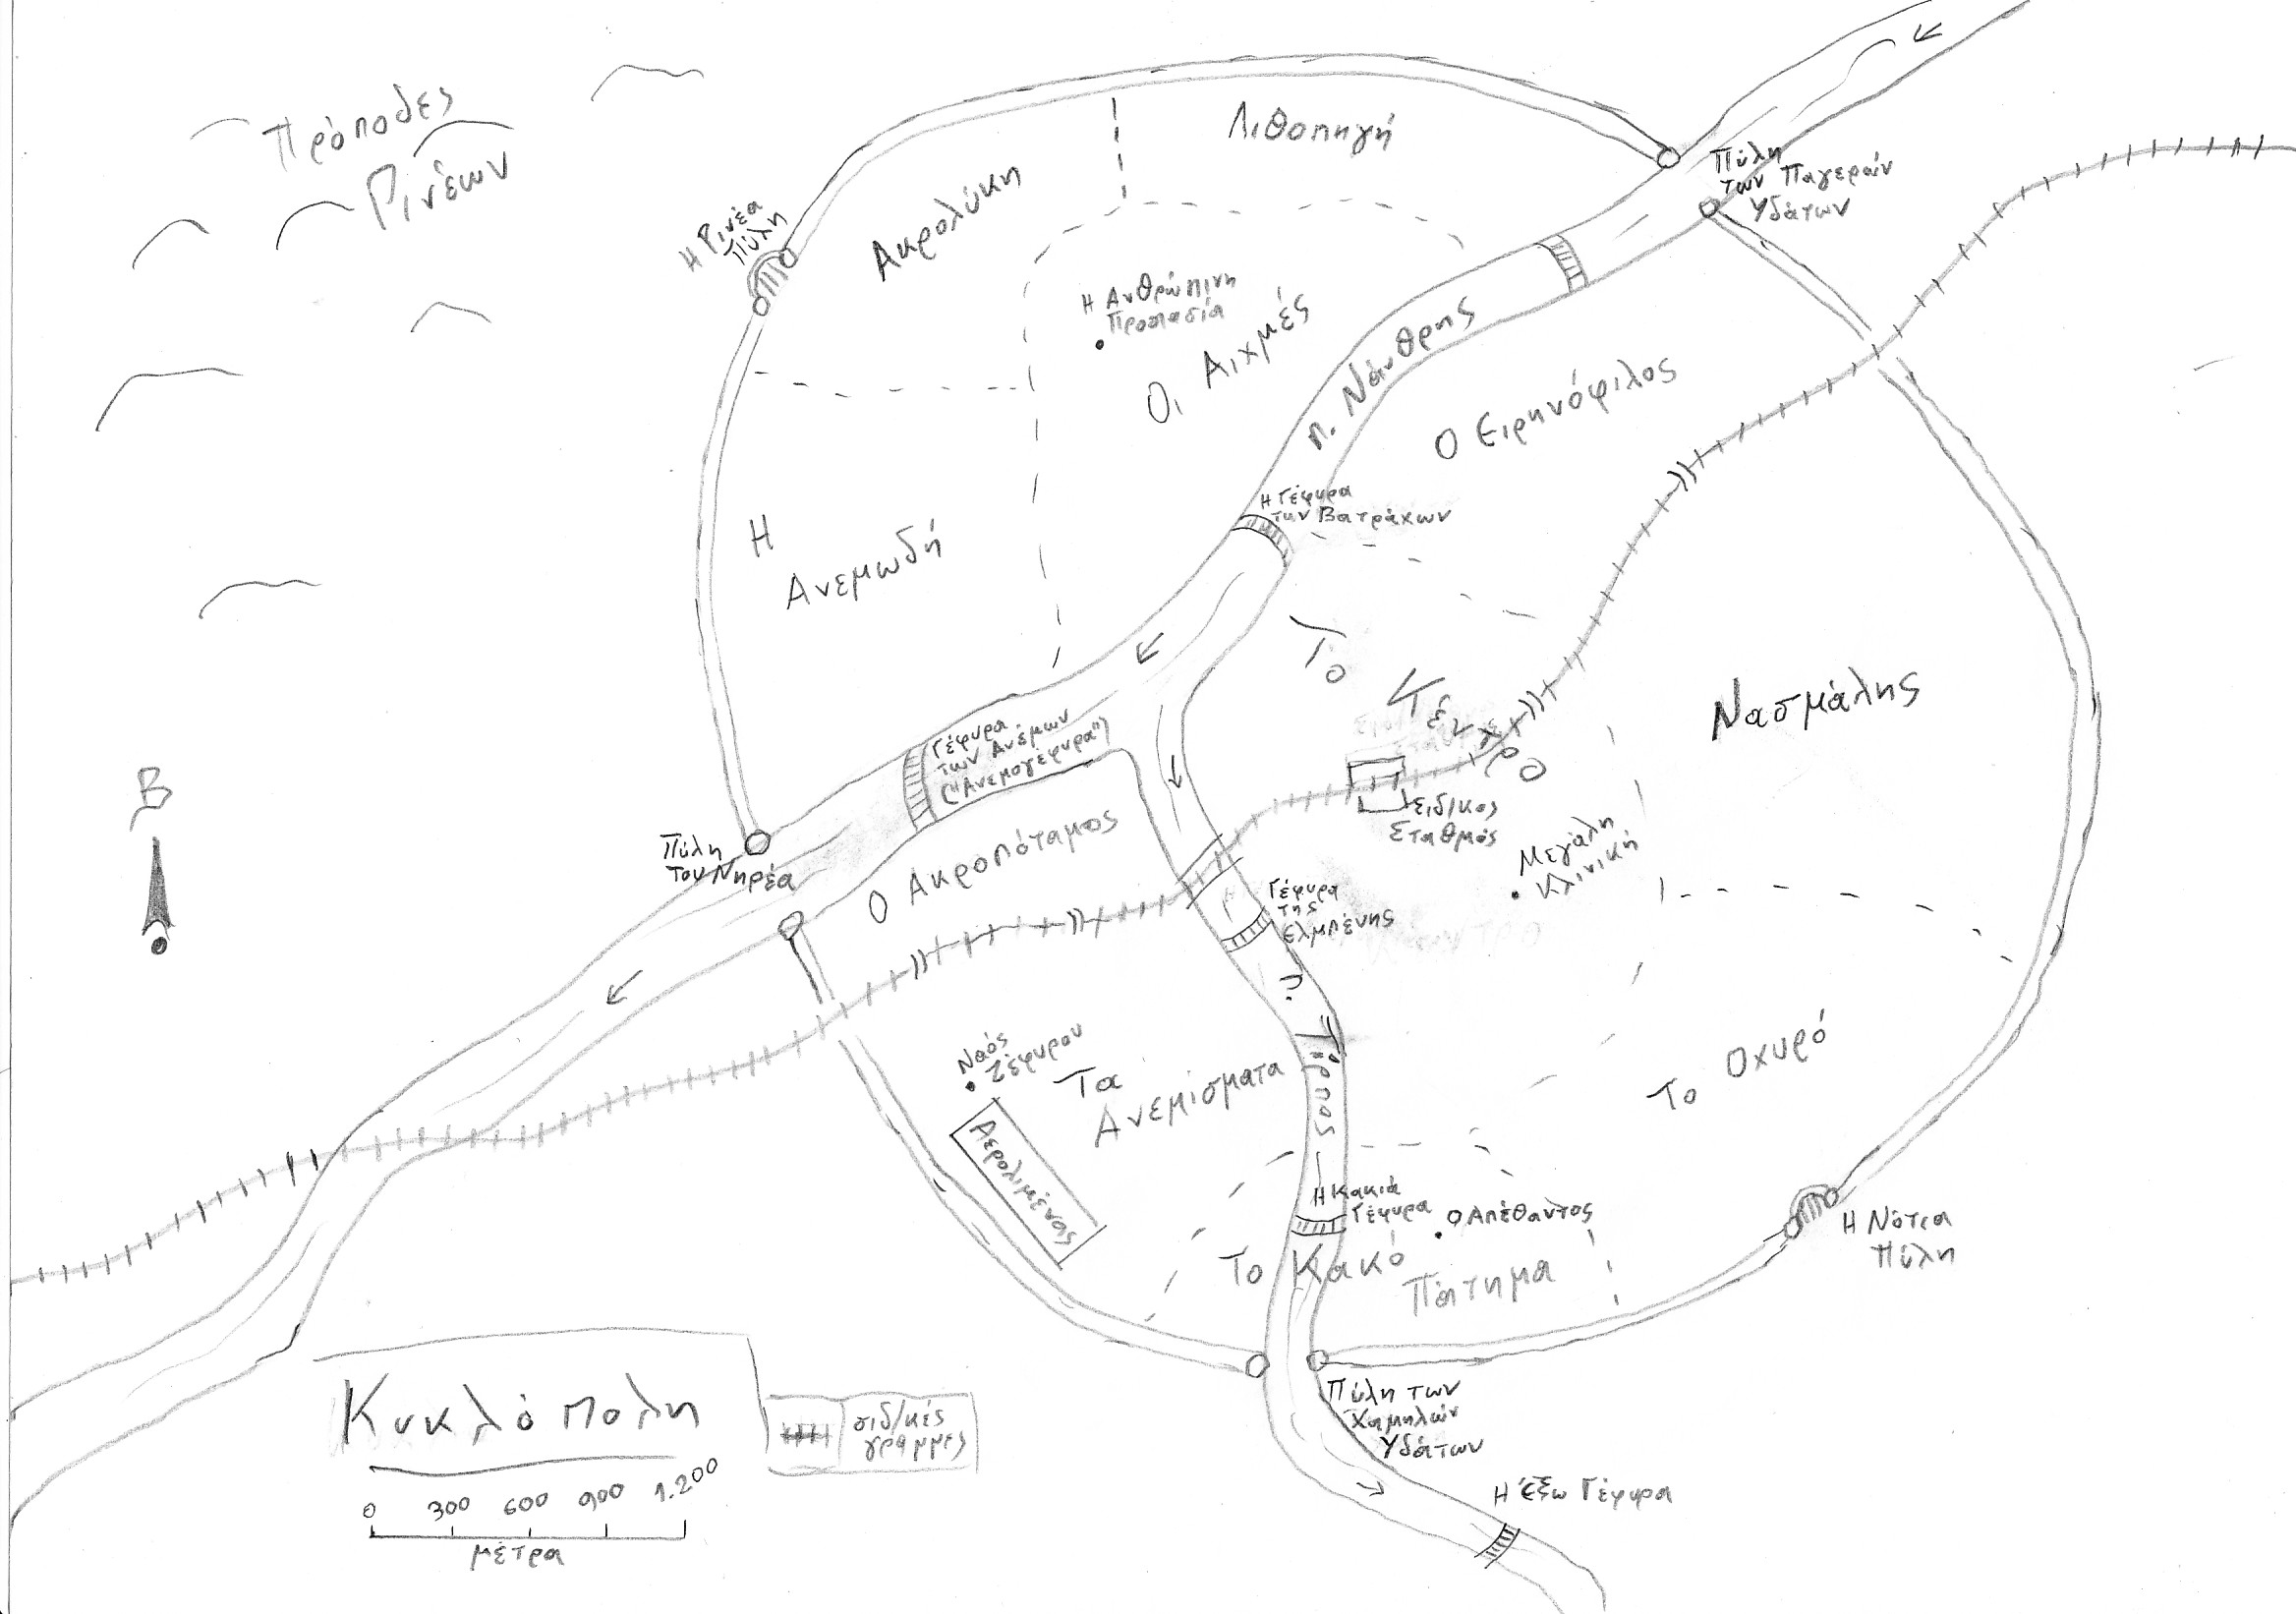 Πρόποδες
Ρινέων
Λιθοπηγή
Ακρολύκη
Η Ρινέα
Πύλη
Πύλη
των Παγερών
Υδάτων
Η Ανθρώπινη
Προπασία
Οι Αιχμές
π. Νάνθρης
Ο Ειρηνόφιλος
Η Γέφυρα
των Βατράχων
Η
Ανεμωδή
Το Κέντρο
Νασμάλης
Γέφυρα
των Ανέμων
("Ανεμογέφυρα")
Β
Πύλη
του Νηρέα
Ο Ακροπόταμος
Σιδ/κος
Σταθμός
Μεγάλη
Κλινική
Γέφυρα
της
Ελμπένης
π. Τύρπος
Ναός
Ζέφυρου
Τα
Ανεμίσματα
Αερολιμένας
Το Οχυρό
Η Κακιά
Γέφυρα
Ο Απέθαντος
Το Κακό
Πάτημα
Η Νότια
Πύλη
Πύλη των
Χαμηλών
Υδάτων
Η Έξω Γέφυρα
Κυκλόπολη
σιδ/κές
γραμμές
0 300 600 900 1.200
μέτρα